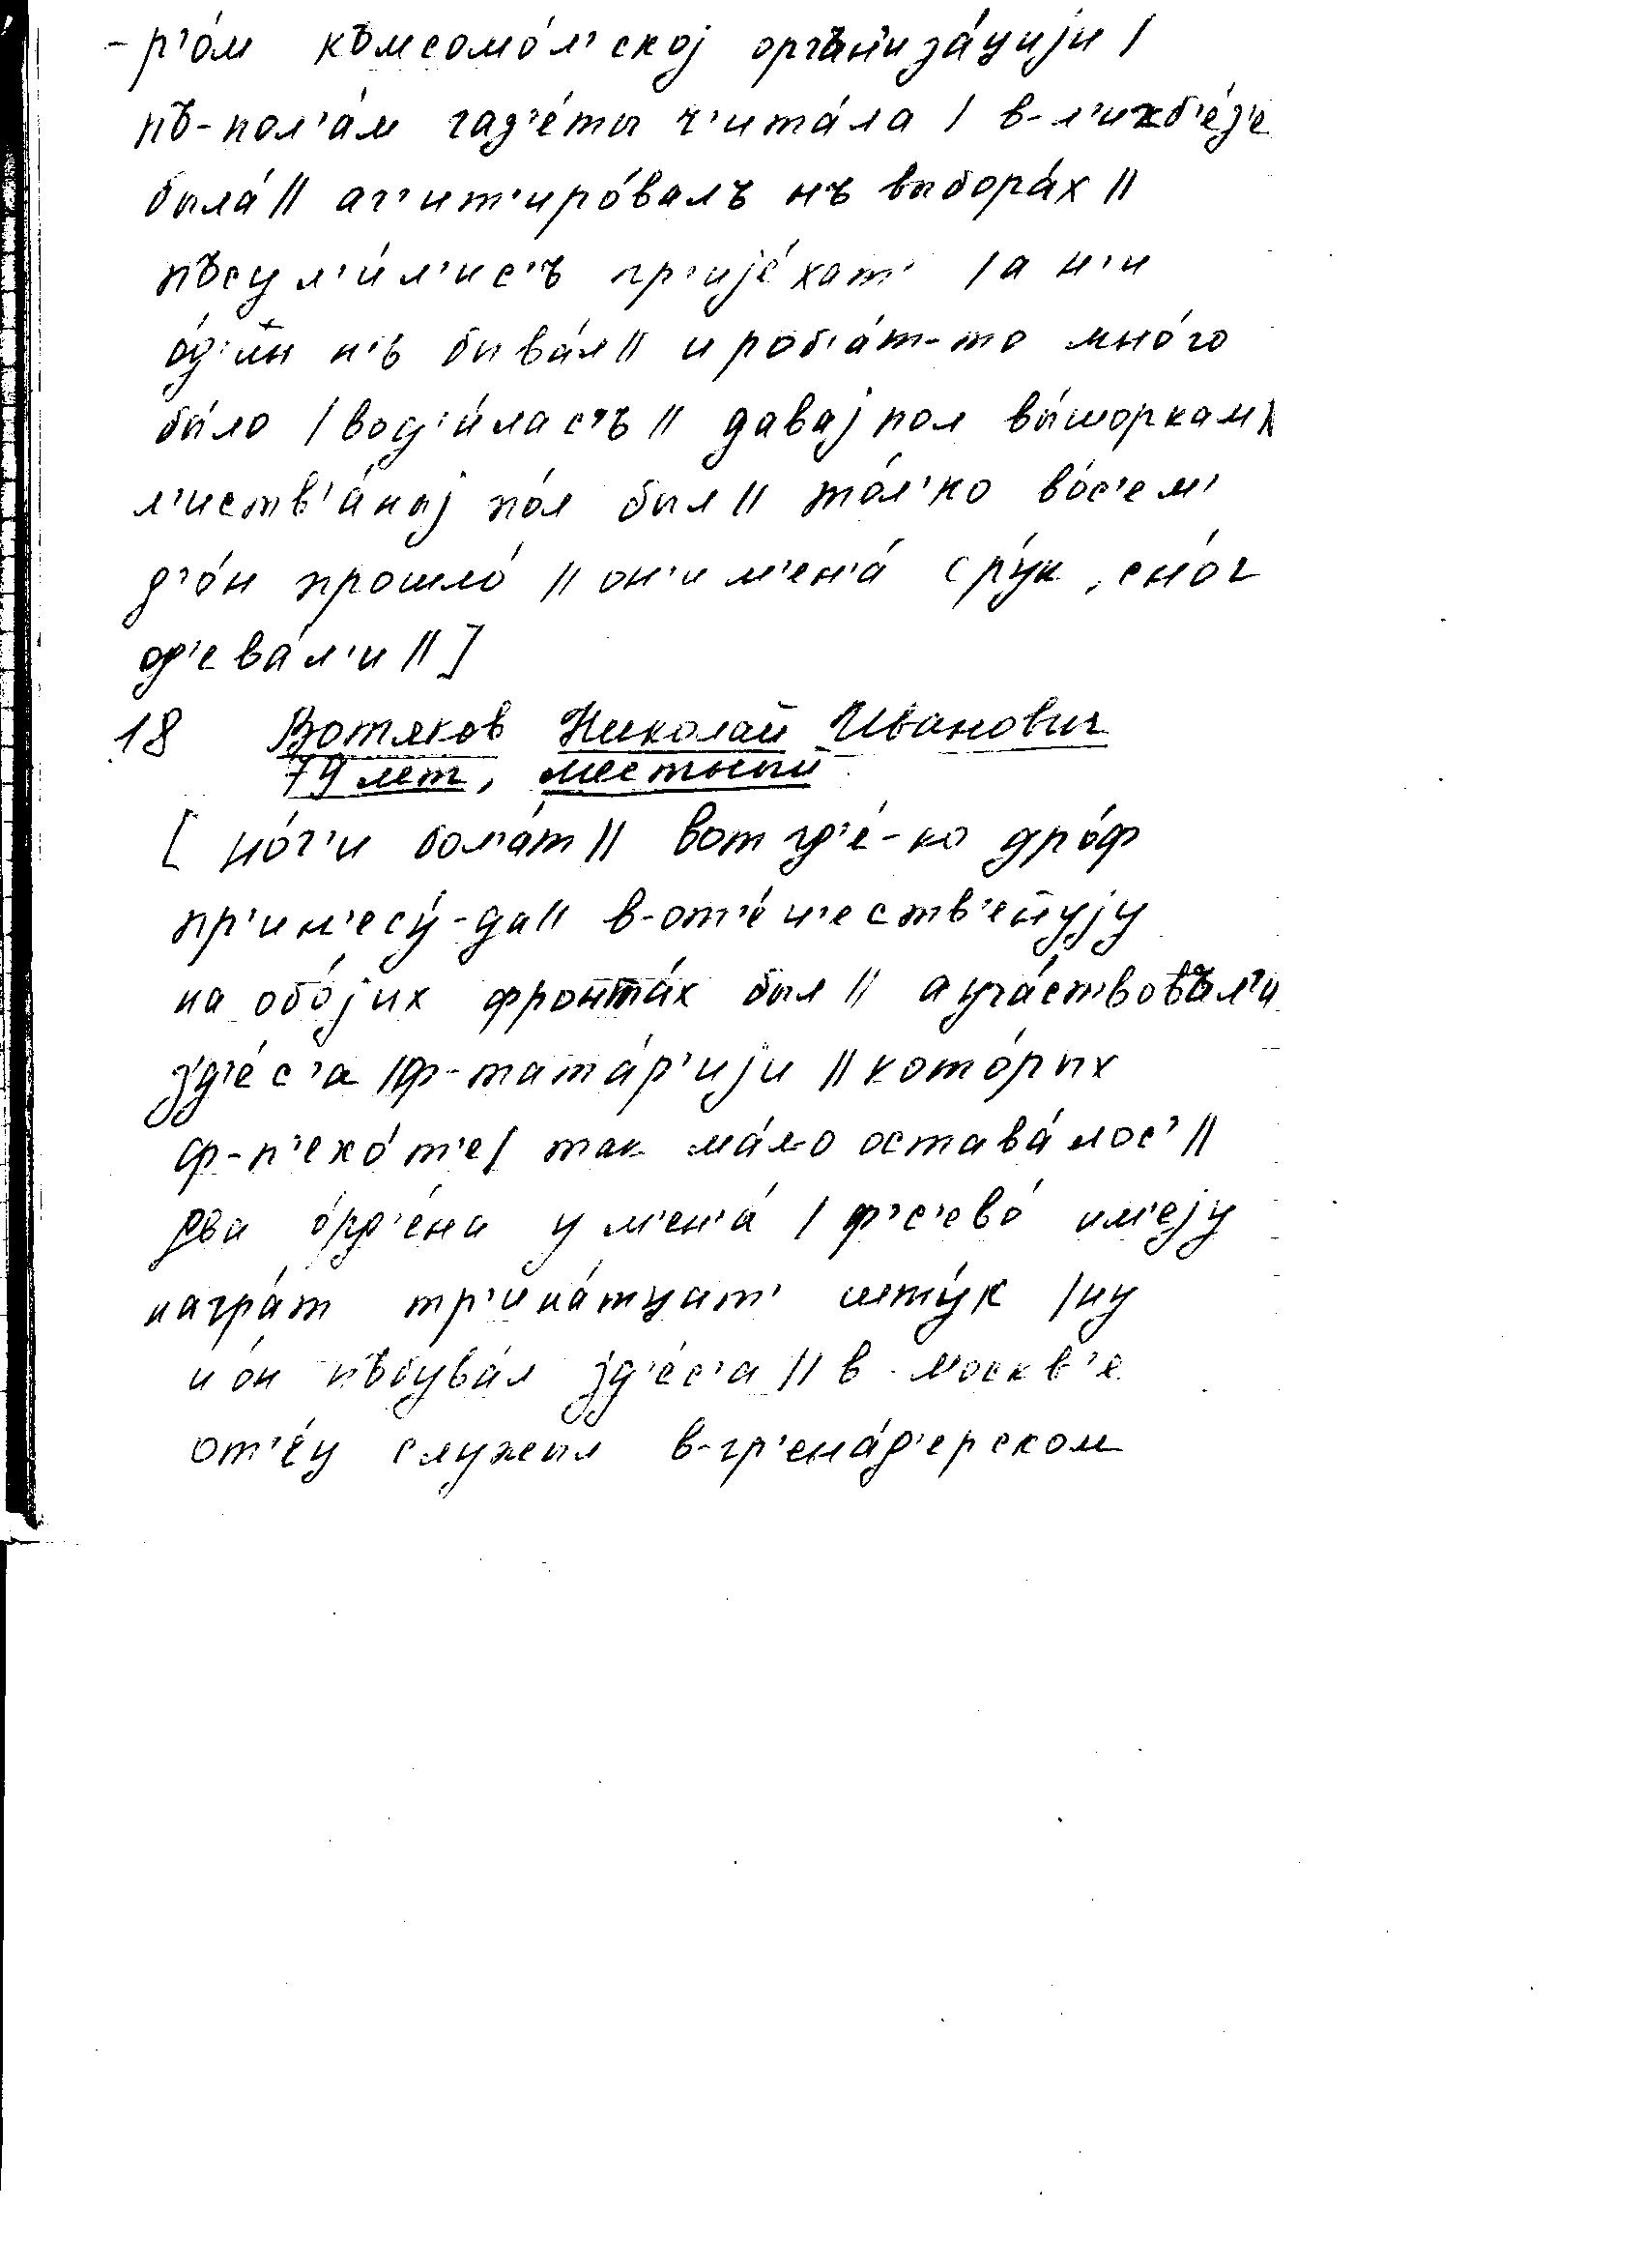 -р'о́м къмсомо́л'ској оргъниза́цији /
пъ-пол'а́м газ'е́ты ч'ита́ла / в-л'икб'е́з'е
была́ // аг'ит'иро́валъ нъ выбора́х //
пъсул'и́л'ис'ъ пр'ије́хат' / а н'и
о́д'ин н'ь быва́л // и роб'а́т-то мно́го
бы́ло / вод'и́лас'ъ // давај пол вы́шоркам /
л'иств'а́ныј по́л был // то́л'ко во́с'ем'
д'о́н прошло́ // он'и м'ен'а́ с ру́к, с но́г
од'ева́л'и // ]
18 Вотяков Николай Иванович
79 лет, местный
[ но́г'и бол'а́т // вот гд'е́-ко дро́ф
пр'ин'есу́-да // в-от'е́ч'еств'ен̄ују
на обо́јих фронта́х был // а уча́ствовъл'и
зд'е́с'а / ф-тата́р'ији // кото́рых
ф-п'ехо́т'е / так ма́ло остава́лос' //
два о́рд'е́на у м'ен'а́ / ф'с'ево́ им'еју
награ́т тр'ина́тцат' шту́к / ну
и о́н пъбува́л зд'е́с'а // в-москв'е
от'е́ц служыл в-гр'ена́д'ерском